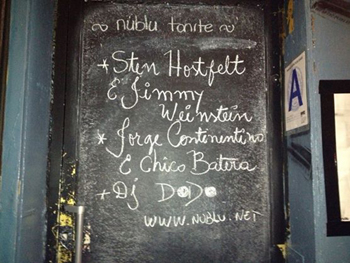 ~ nublu tonite ~
* Sten Hostfelt
& Jimmy
Weinstein
* Jorge Continentino
& Chico Batera
* Dj DODO
www.NUBLU.NET
A